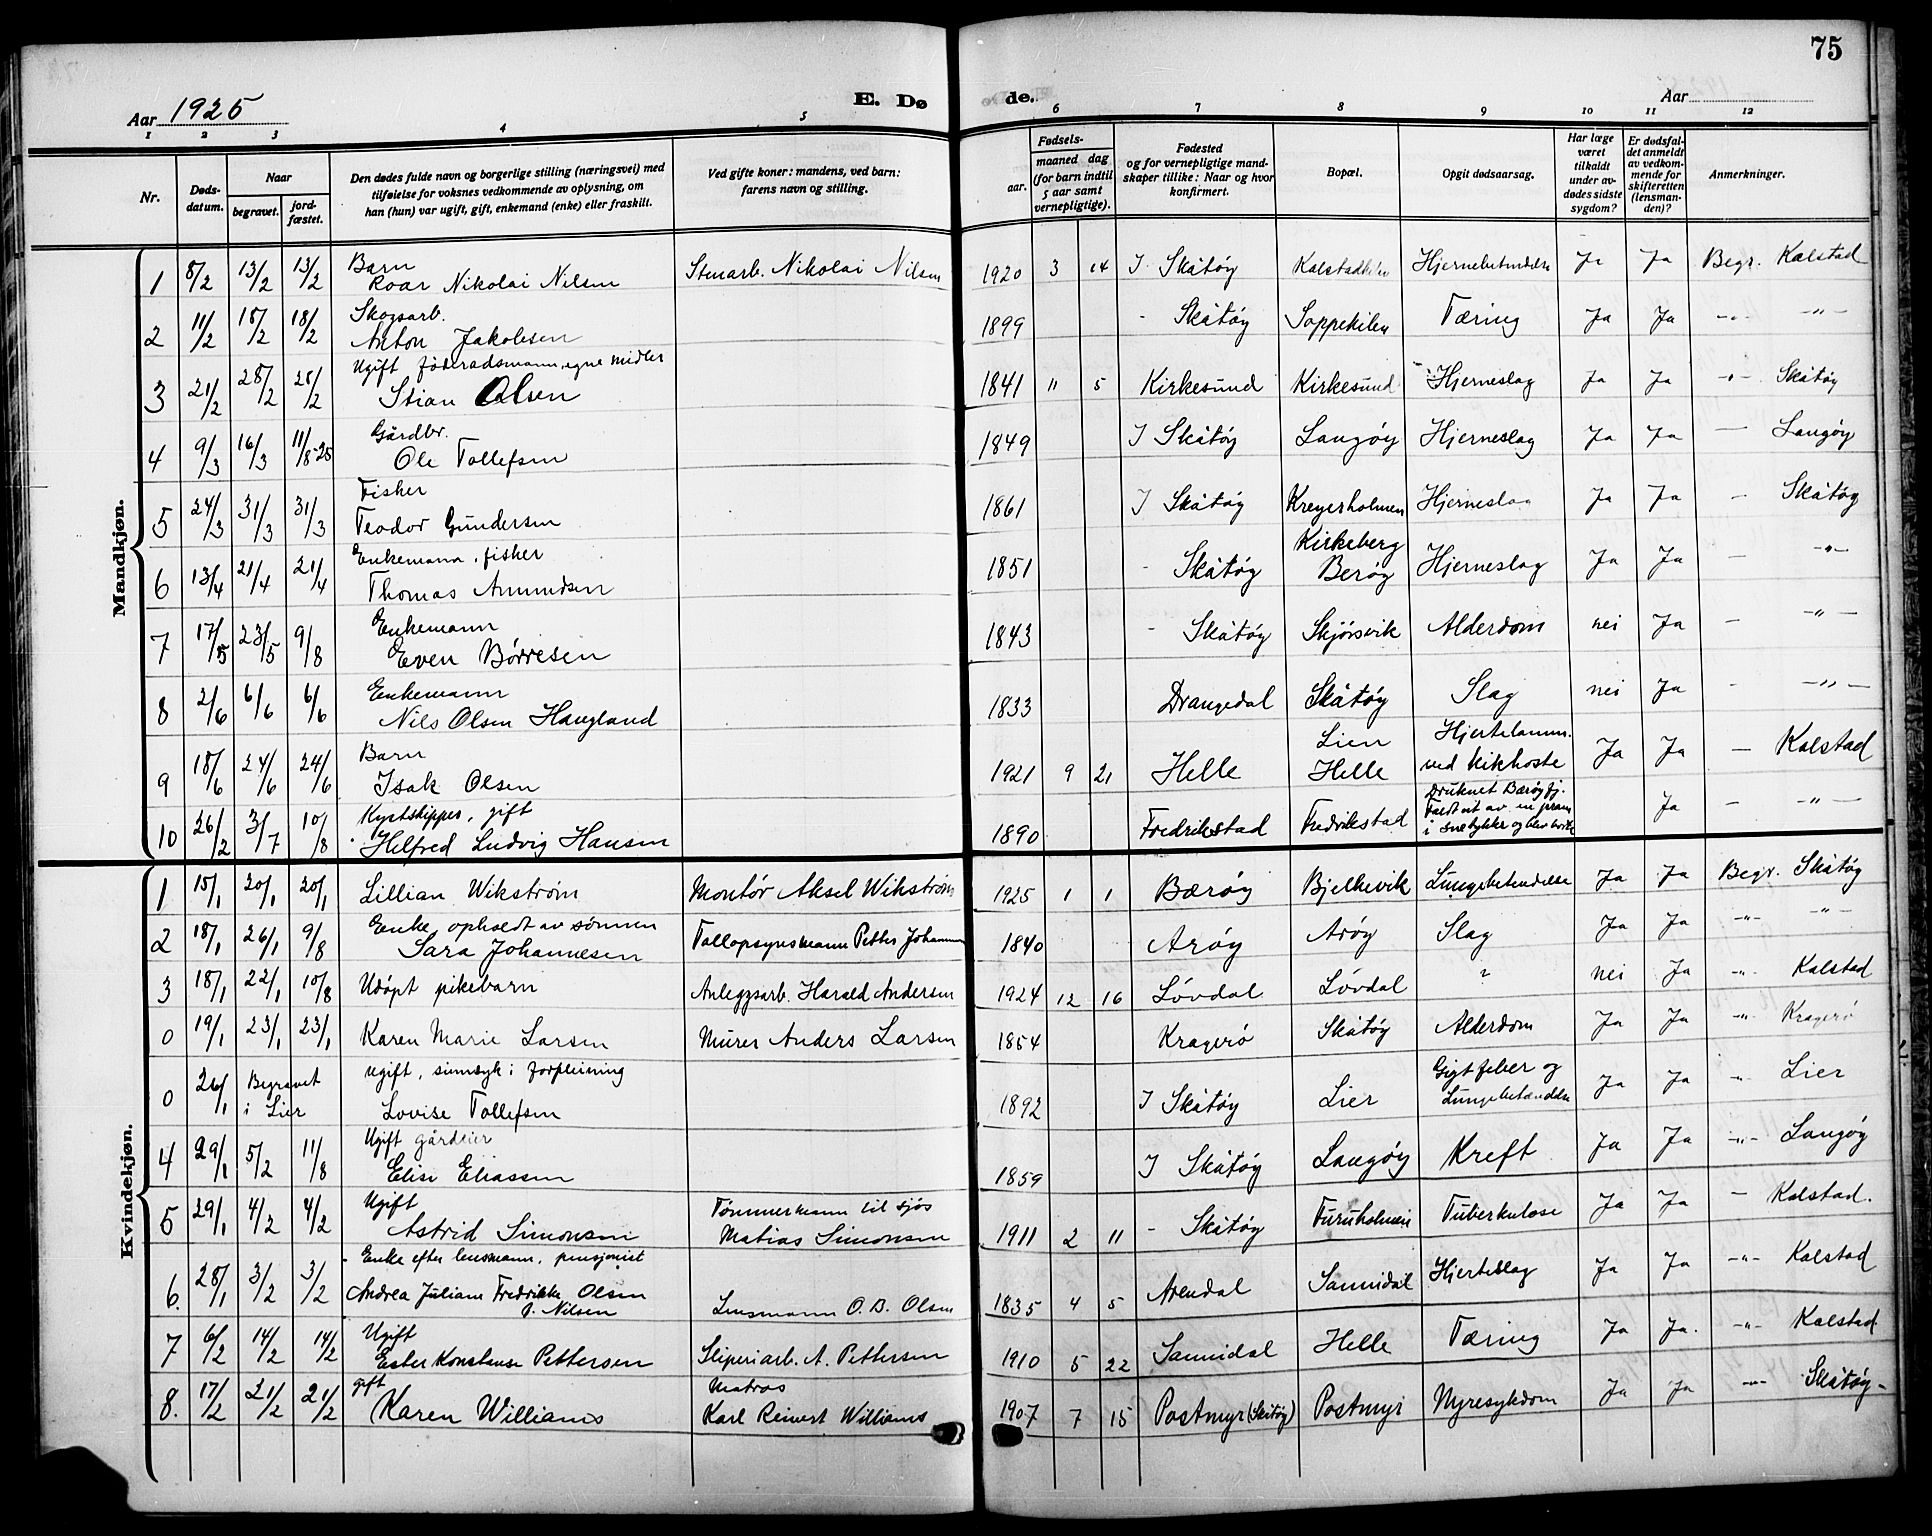 75
Aar 1925 E. Dø de. Aar
1 2 3 4 5 6 7 8 9 10 11 12
Nr. Døds-datum. Naar begravet. jord-fæstet. Den dødes fulde navn og borgerlige stilling (næringsvei) med tilføielse for voksnes vedkommende av oplysning, om han (hun) var ugift, gift, enkemand (enke) eller fraskilt. Ved gifte koner: mandens, ved barn: farens navn og stilling. Fødsels- aar. maaned dag (for barn indtil 5 aar samt vernepligtige). Fødested og for vernepligtige mand-skaper tillike: Naar og hvor konfirmert. Bopæl. Opgit dødsaarsag. Har læge været tilkaldt under av-dødes sidste sygdom? Er dødsfal-det anmeldt av vedkom-mende for skifteretten (lensman-den)? Anmerkninger.
Mandkjøn.
1 8/2 13/2 13/2 Barn Roar Nikolai Nilsen Stenarb. Nikolai Nilsen 1920 3 14 I Skåtøy Kalstadkilen Hjernebetendelse Ja Ja Begr. Kalstad
2 11/2 18/2 18/2 Skogsarb. Anton Jakobsen 1899 - Skåtøy Soppekilen Tæring Ja Ja -"- -"-
3 21/2 28/2 28/2 Ugift føderadsmann, egne midler Stian Olsen 1841 11 5 Kirkesund Kirkesund Hjerneslag Ja Ja -"- Skåtøy
4 9/3 16/3 11/8-25 Gårdbr. Ole Tollefsen 1849 I Skåtøy Langøy Hjerneslag Ja Ja — Langøy
5 24/3 31/3 31/3 Fisher Teodor Gundersen 1861 I Skåtøy Kreyerholmen Hjerneslag Ja Ja - Skåtøy
6 13/4 21/4 21/4 Enkemann, fisher Thomas Amundsen 1851 - Skåtøy Kirkeberg Berøy Hjerneslag Ja Ja - -"-
7 17/5 23/5 9/8 Enkemann Even Børresen 1843 - Skåtøy Skjørsvik Alderdom nei Ja - -"-
8 2/6 6/6 6/6 Enkemann Nils Olsen Haugland 1833 Drangedal Skåtøy Slag nei Ja - -"-
9 18/6 24/6 24/6 Barn Isak Olsen 1921 9 21 Helle Lien Helle Hjertelamm. ved kikhoste Ja Ja - Kalstad
10 26/2 3/7 10/8 Kystskipper, gift Helfred Ludvig Hansen 1890 Fredrikstad Fredrikstad Druknet Bærøyfj. Faldt ut av en pram i snetykke og blev Ja - -"-
Kvindekjøn.
1 15/1 20/1 20/1 Lillian Wikstrøm Montør Aksel Wikstrøm 1925 1 1 Bærøy Bjelkevik Lungebetendelse Ja Ja Begr. Skåtøy
2 18/1 26/1 9/8 Enke, opholdt av sønnen Sara Johannesen Tollopsynsmann Petter Johannesen 1840 Arøy Arøy Slag Ja Ja -"- -"-
3 18/1 22/1 10/8 Udøpt pikebarn Anleggsarb. Harald Andersen 1924 12 16 Løvdal Løvdal ? nei Ja -"- Kalstad
0 19/1 23/1 23/1 Karen Marie Larsen Murer Anders Larsen 1854 Kragerø Skåtøy Alderdom Ja Ja -"- Kragerø
0 26/1 Begravet i Lier ugift, sinnsyk i forpleining Lovise Tollefsen 1892 I Skåtøy Lier Gigtfeber og Lungebetændelse Ja Ja -"- Lier
4 29/1 5/2 11/8 Ugift gårdeier Elise Eliassen 1859 I Skåtøy Langøy Kreft Ja Ja -"- Langøy
5 29/1 4/2 4/2 Ugift Astrid Simonsen Tømmermann til sjøs Matias Simonsen 1911 2 11 - Skåtøy Furuholmen Tuberkulose Ja Ja - Kalstad.
6. 28/1 3/2 3/2 Enke efter lensmann, pensjonist Andrea Juliane Fredrikke Olsen f. Nilsen Lensmann O. B. Olsen 1835 4 5 Arendal Sannidal Hjerteslag Ja Ja -"- Kalstad
7 6/2 14/2 14/2 Ugift Ester Konstanse Pettersen Sliperiarb. A. Pettersen 1910 5 22 Sannidal Helle Tæring Ja Ja. -"- Kalstad
8. 17/2 21/2 21/2 gift Karen Williams Matros Karl Reinert Williams 1907 7 15 Postmyr (Skåtøy) Postmyr Nyresykdom Ja Ja -"- Skåtøy-